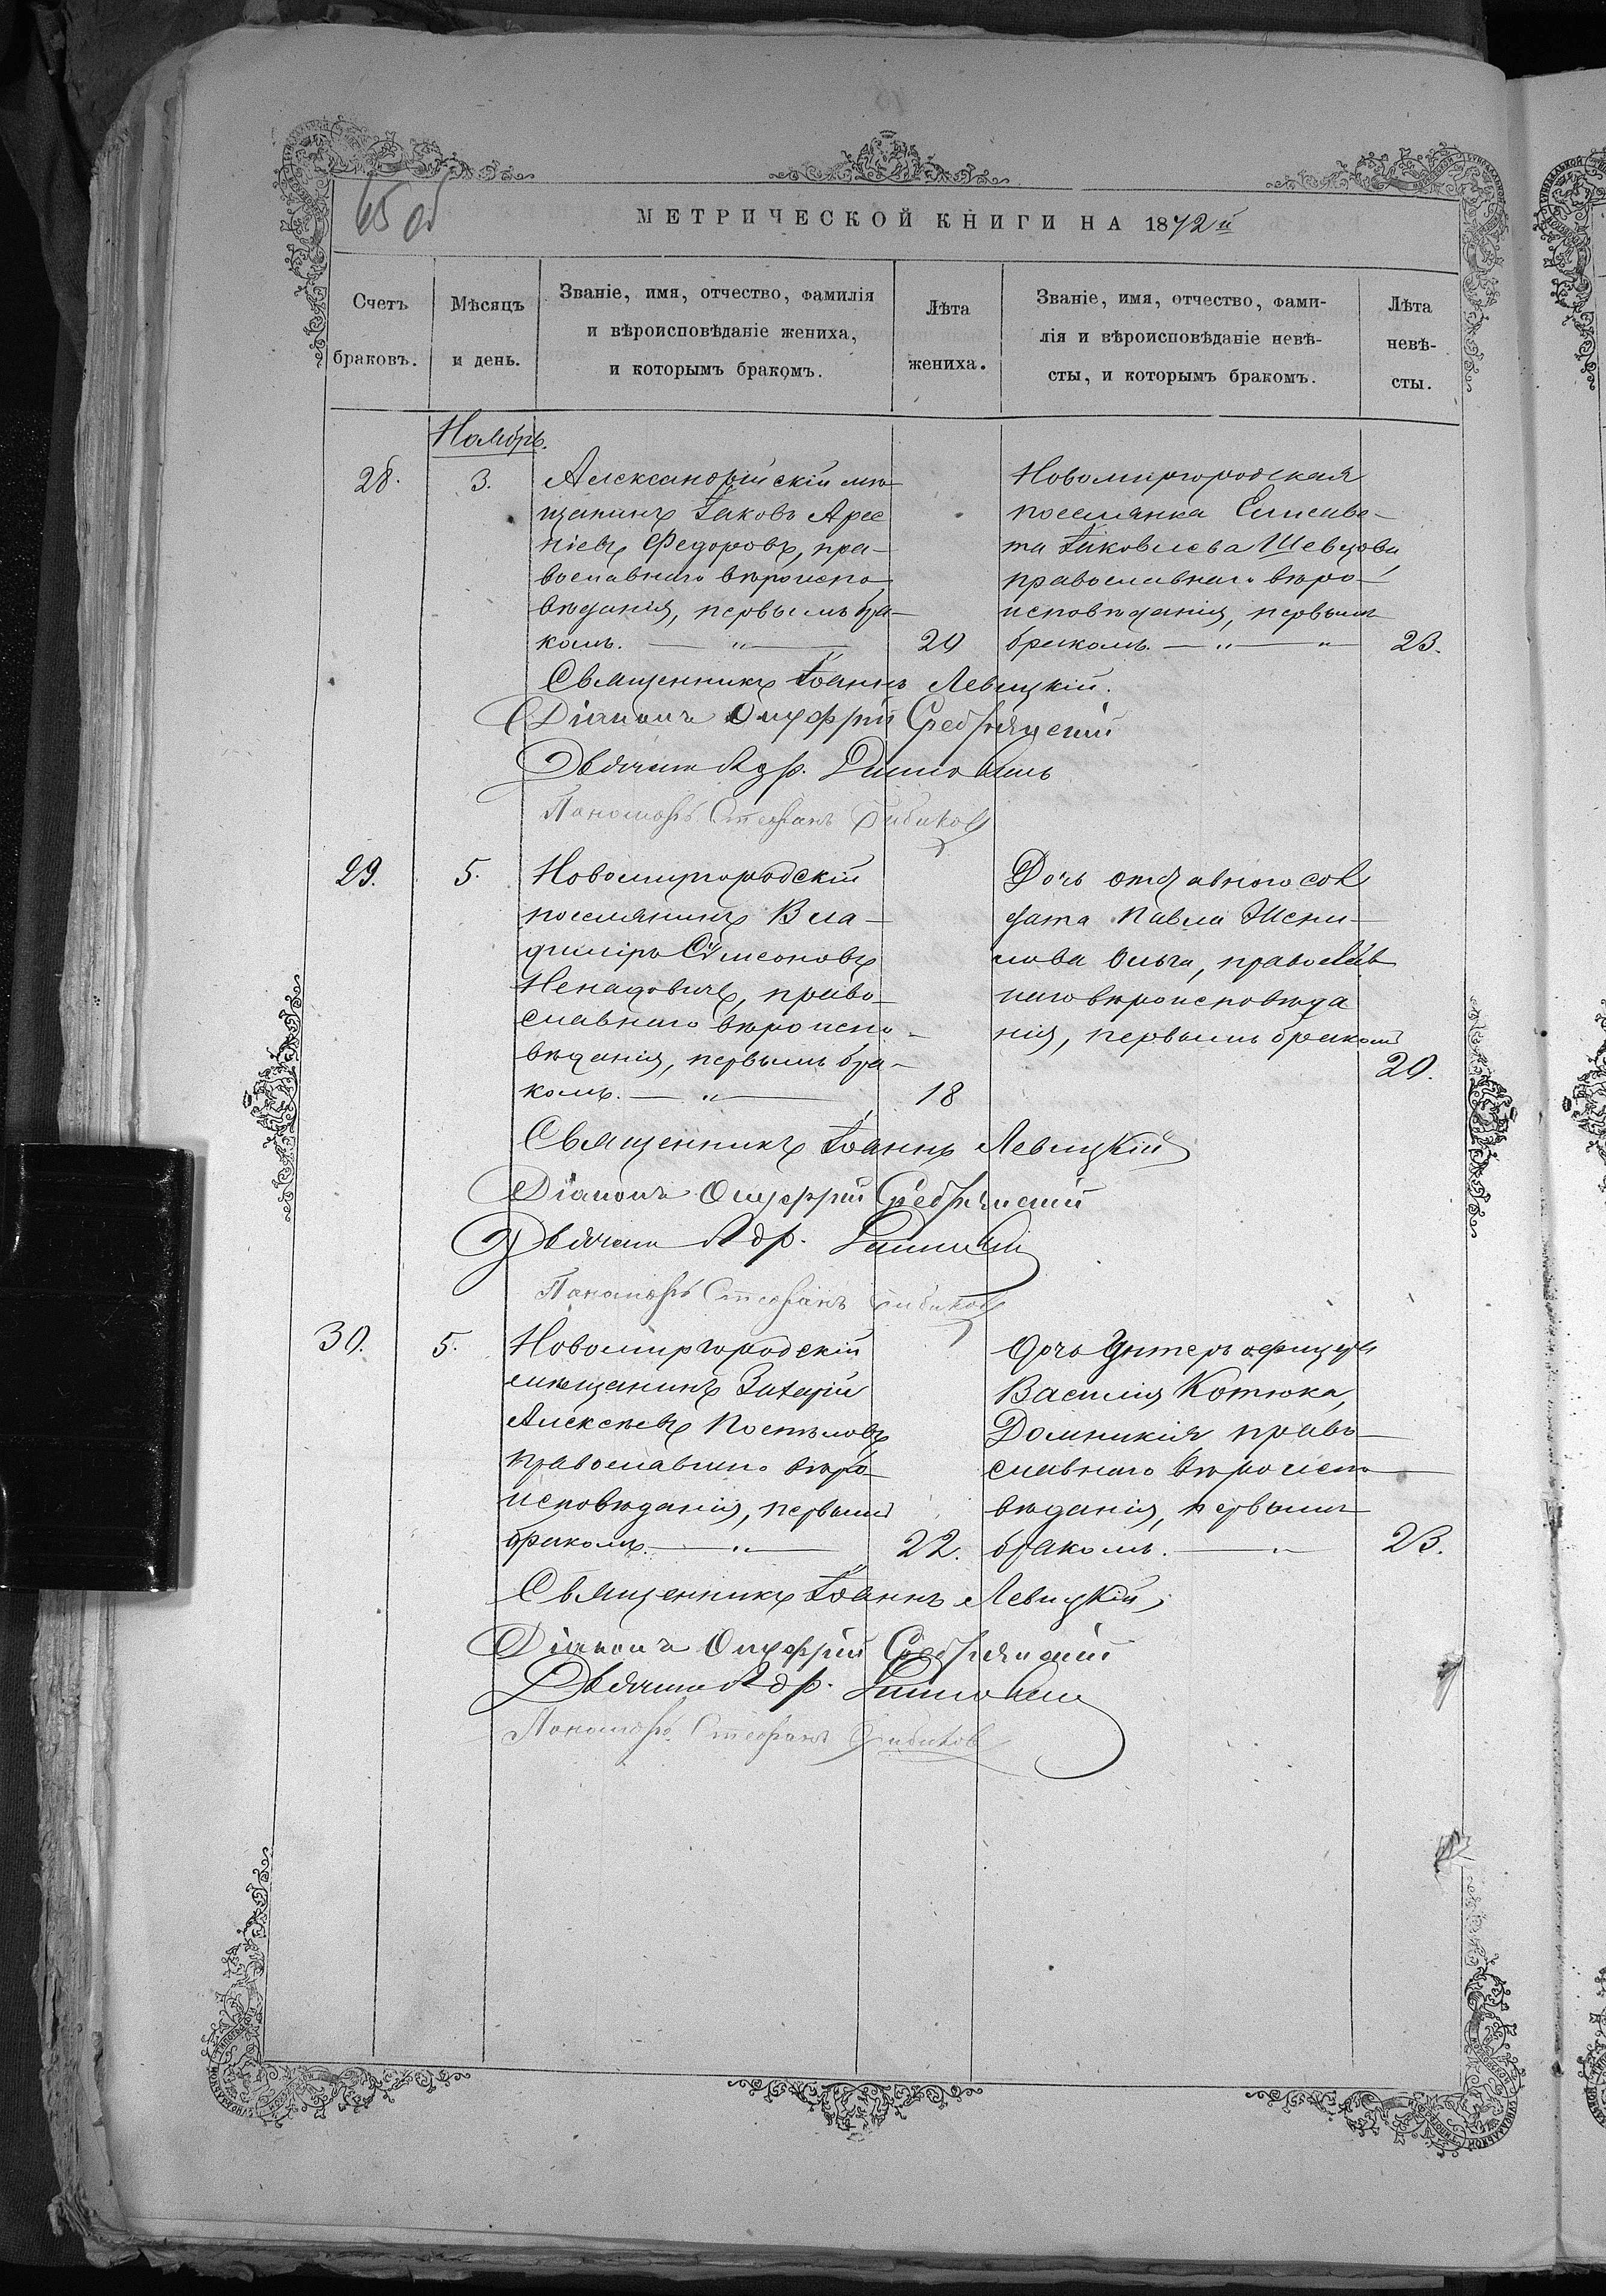 65 об
МЕТРИЧЕСКОЙ КНИГИ НА 1872й
Счетъ браковъ.
Мѣсяцъ и день.
Званіе, имя, отчество, фамилія
и вѣроисповѣданіе жениха,
и которымъ бракомъ.
Лѣта жениха.
Званіе, имя, отчество, фами-
лія и вѣроисповѣданіе невѣ-
сты, и которымъ бракомъ.
Лѣта невѣ-
сты.
Ноябрь.
28.
3.
Александрійскій мѣ-
щанинъ Іаковъ Арсе
ніевъ Федоровъ, пра-
вославнаго вѣроиспо
вѣданія, первымъ бра-
комъ. — " —
20
Новомиргородская
поселянка Елисаве-
та Іаковлева Шевцова,
православнаго вѣро-
исповѣданія, первымъ
бракомъ. — " — "
23.
Священникъ Іоаннъ Левицкій.
Діаконъ Онуфрій Сребрянскій
Дьячекъ Адр.
Пономарь Стефанъ
29.
5.
Новомиргородскій
поселянинъ Вла-
диміръ Сѵмеоновъ
Ненадовичъ, право-
славнаго вѣроиспо-
вѣданія, первымъ бра-
комъ. — " —
18
Дочь отставного сол
дата Павла
Ольга, православ
наго вѣроисповѣда
нія, первымъ бракомъ
20.
Священникъ Іоаннъ Левицкій
Діаконъ Онуфрій Сребрянскій
Дьячекъ Адр.
Пономарь Стефанъ
30.
5.
Новомиргородскій
мѣщанинъ Захарій
Алексѣевъ Постоловъ
православнаго вѣро-
исповѣданія, первымъ
бракомъ. — " —
22.
Дочь Унтеръ офицера
Василія Котюка,
Домникія право-
славнаго вѣроиспо-
вѣданія, первымъ
бракомъ. — " —
23.
Священникъ Іоаннъ Левицкій
Діаконъ Онуфрій Сребрянскій
Дьячекъ Адр.
Пономарь Стефанъ